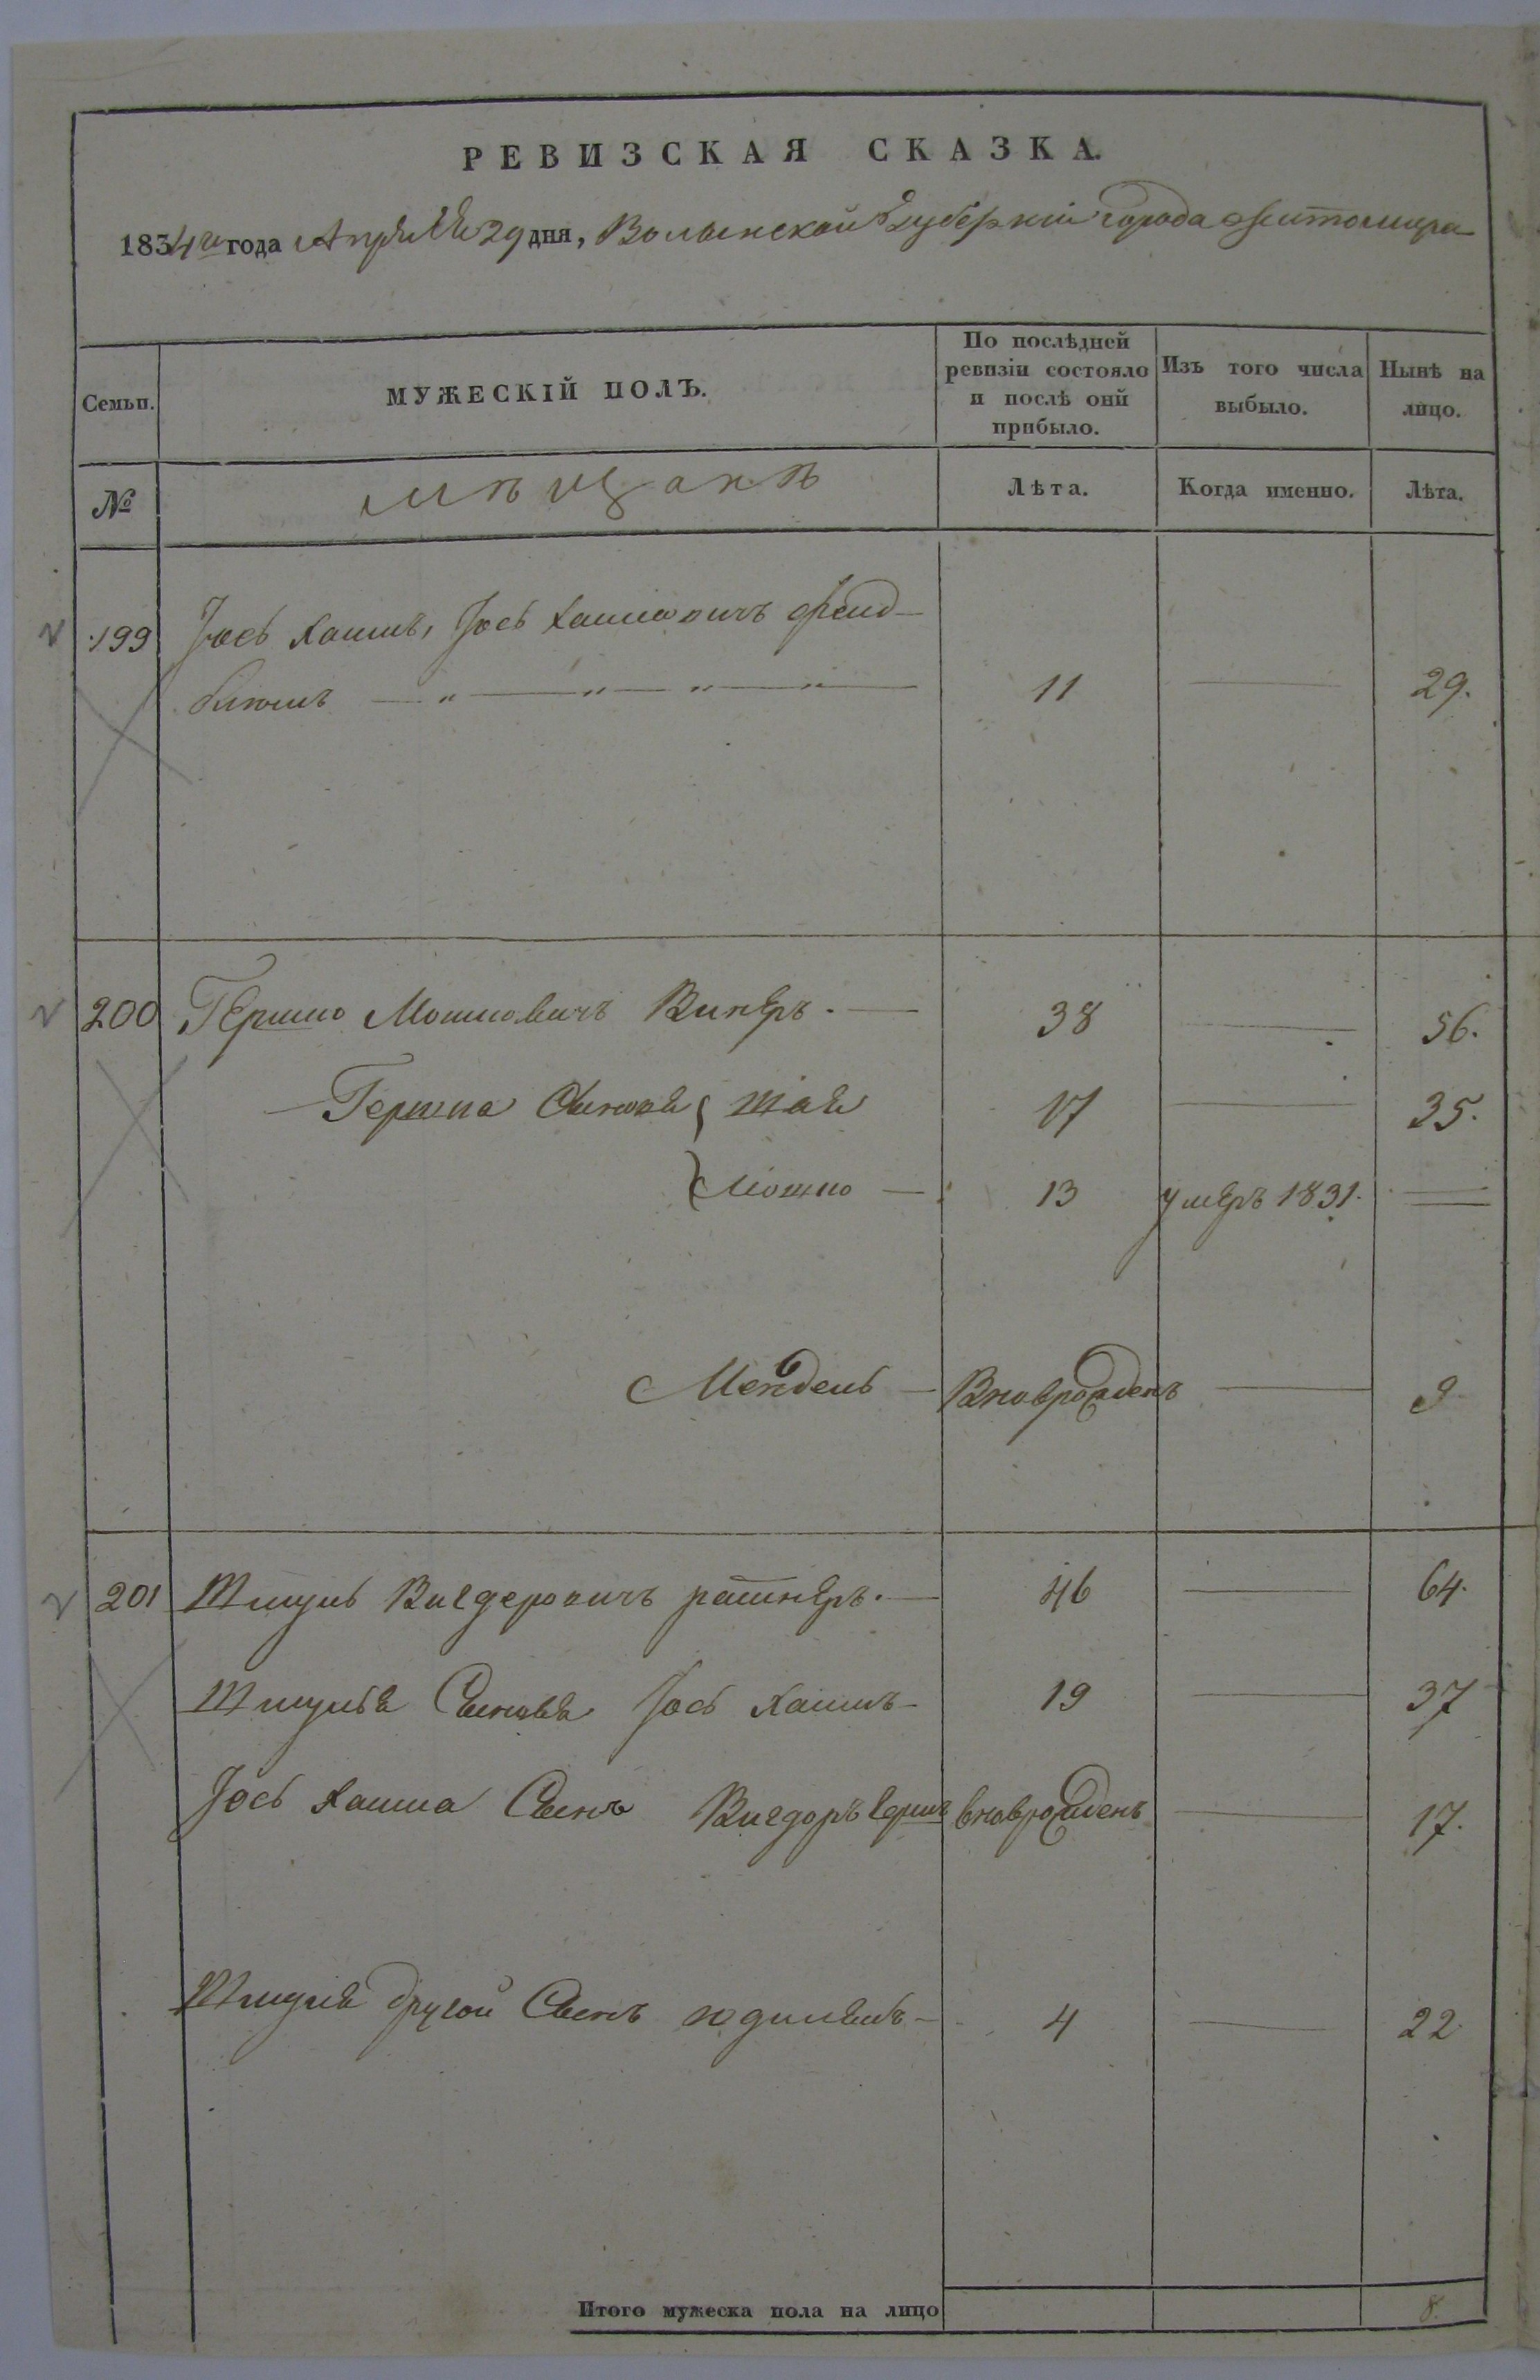 РЕВИЗСКАЯ СКАЗКА.
1834го года Апреля 29 дня, Волынской Губерніи города Житомира
Семьи.
МУЖЕСКІЙ ПОЛЪ.
По послѣдней
ревизіи состояло
и послѣ оній
прибыло.
Изъ того числа
выбыло.
Нынѣ на
лицо.
№
мѣщанѣ
Лѣта.
Когда именно.
Лѣта.
199 Іось Хаимъ, Іось Хаимовичъ
11 29.
200 Гершко Мошковичъ Винеръ. 38 56.
Гершка Сыновя 17 35.
Мошко 13 умеръ 1831.
Мендель Вноврожденъ 9
201 Шмуль Вигдеровичъ ратнеръ. 46 64.
Шмуля Сыновя Іось Хаимъ 19 37
Іось Хаима Сынъ Вигдоръ вноврожденъ 17.
Шмуля другой Сынъ 4 22
Итого мужеска пола на лицо 8.